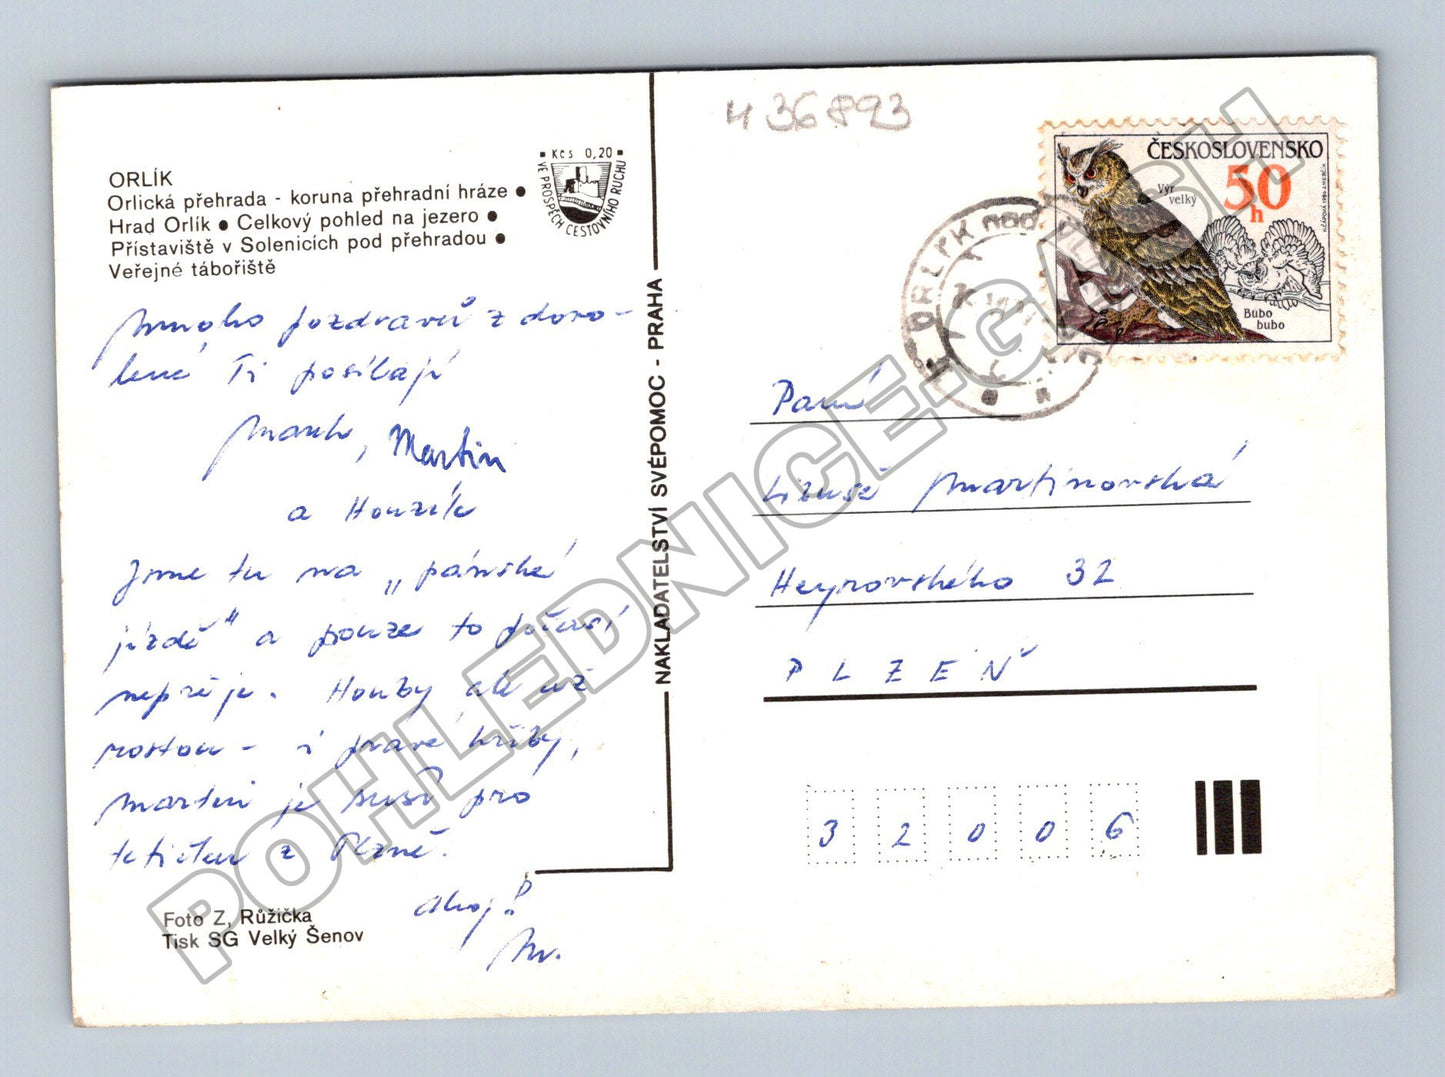 ORLÍK
Orlická přehrada - koruna přehradní hráze ●
Hrad Orlík ● Celkový pohled na jezero ●
Přístaviště v Solenicích pod přehradou ●
Veřejné tábořiště
Kčs 0,20
VE PROSPĚCH CESTOVNÍHO RUCHU
Mnoho pozdravů z dovo-
lené Ti posílají
Martin
a Honzík
Jsme tu na „pánské
jízdě" a pouze to počasí
nepřeje. Houby ale už
rostou - i pravé hřiby,
Martin je suší pro
tetičku z Plzně.
Ahoj!
M.
Foto Z. Růžička
Tisk SG Velký Šenov
NAKLADATELSTVÍ SVÉPOMOC - PRAHA
436893
ČESKOSLOVENSKO
50
h
Výr
velký
Bubo
bubo
ORLÍK nad
Paní
Libuše Martinovská
Heyrovského 32
PLZEŇ
32006
POHLEDNICE-CASH